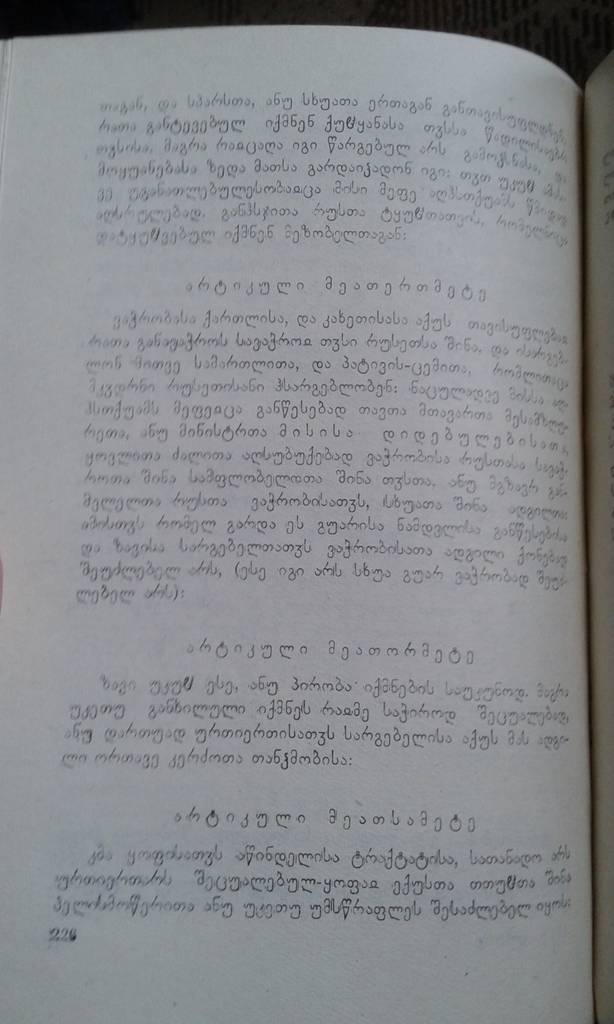 თაგან, და სპარსთა, ანუ სხუათა ერთაგან განთავისუფლდნენ,
რათა განტევებულ იქმნენ ქუჱყანასა თჳსსა წადილისაებრ
თჳსისა. მაგრა რაჲცაღა იგი წარგებულ არს გამოჴსნასა, და
მოყუანებასა ზედა მათსა გარდაიჴადონ იგი: თჳთ უკუჱ
ვე უგანათლებულესობაჲცა მისი მეფე აღჰსთქუამს წმიდად
აღსრულებად. განჰსჯითა რუსთა ტყუჱთათჳს, რომელნიცა
დატყუჱვებულ იქმნენ მეზობელთაგან:
არტიკული მეათერთმეტე
ვაჭრობასა ქართლისა, და კახეთისასა აქუს თავისუფლებაჲ
რათა განავაჭროს სავაჭროჲ თჳსი რუსეთსა შინა, და ისარგებ-
ლონ მითვე სამართლითა, და პატივის-ცემითა, რომლითაცა
მკჳდრნი რუსეთისანი ჰსარგებლობენ: ნაცულადვე მისსა აღ-
ჰსთქუამს მეფეჲცა განწესებად თავთა მთავართა მესამზღუ-
რეთა, ანუ მინისტრთა მისისა დიდებულებისათა,
ყოვლითა ძალითა აღსუბუქებად ვაჭრობისა რუსთასა სავაჭ-
როთა შინა სამფლობელოთა შინა თჳსთა, ანუ მგზავრ გან-
მვლელთა რუსთა ვაჭრობისათჳს, სხუათა შინა ადგილთა:
იმისთჳს რომელ გარდა ეს გუარისა ნამდვლისა განწესებისა
და ზავისა სარგებელთათჳს ვაჭრობისათა ადგილი ქონებად
შეუძლებელ არს, (ესე იგი არს სხუა გუარ ვაჭრობად შეუძ-
ლებელ არს):
არტიკული მეათორმეტე
ზავი უკუჱ ესე, ანუ პირობა იქმნების საუკუნოდ. მაგრა
უკეთუ განხილული იქმნეს რაჲმე საჭიროდ შეცუალებად,
ანუ დართუად ურთიერთისათჳს სარგებელისა აქუს მას ადგი-
ლი ორთავე კერძოთა თანჴმობისა:
არტიკული მეათსამეტე
კმა ყოფისათჳს აწინდელისა ტრაქტატისა, სათანადო არს
ურთიერთარს შეცუალებულ-ყოფაჲ ექუსთა თთუჱთა შინა
ჴელისმოწერითა ანუ უკეთუ უმსწრაფლეს შესაძლებელ იყოს:
226